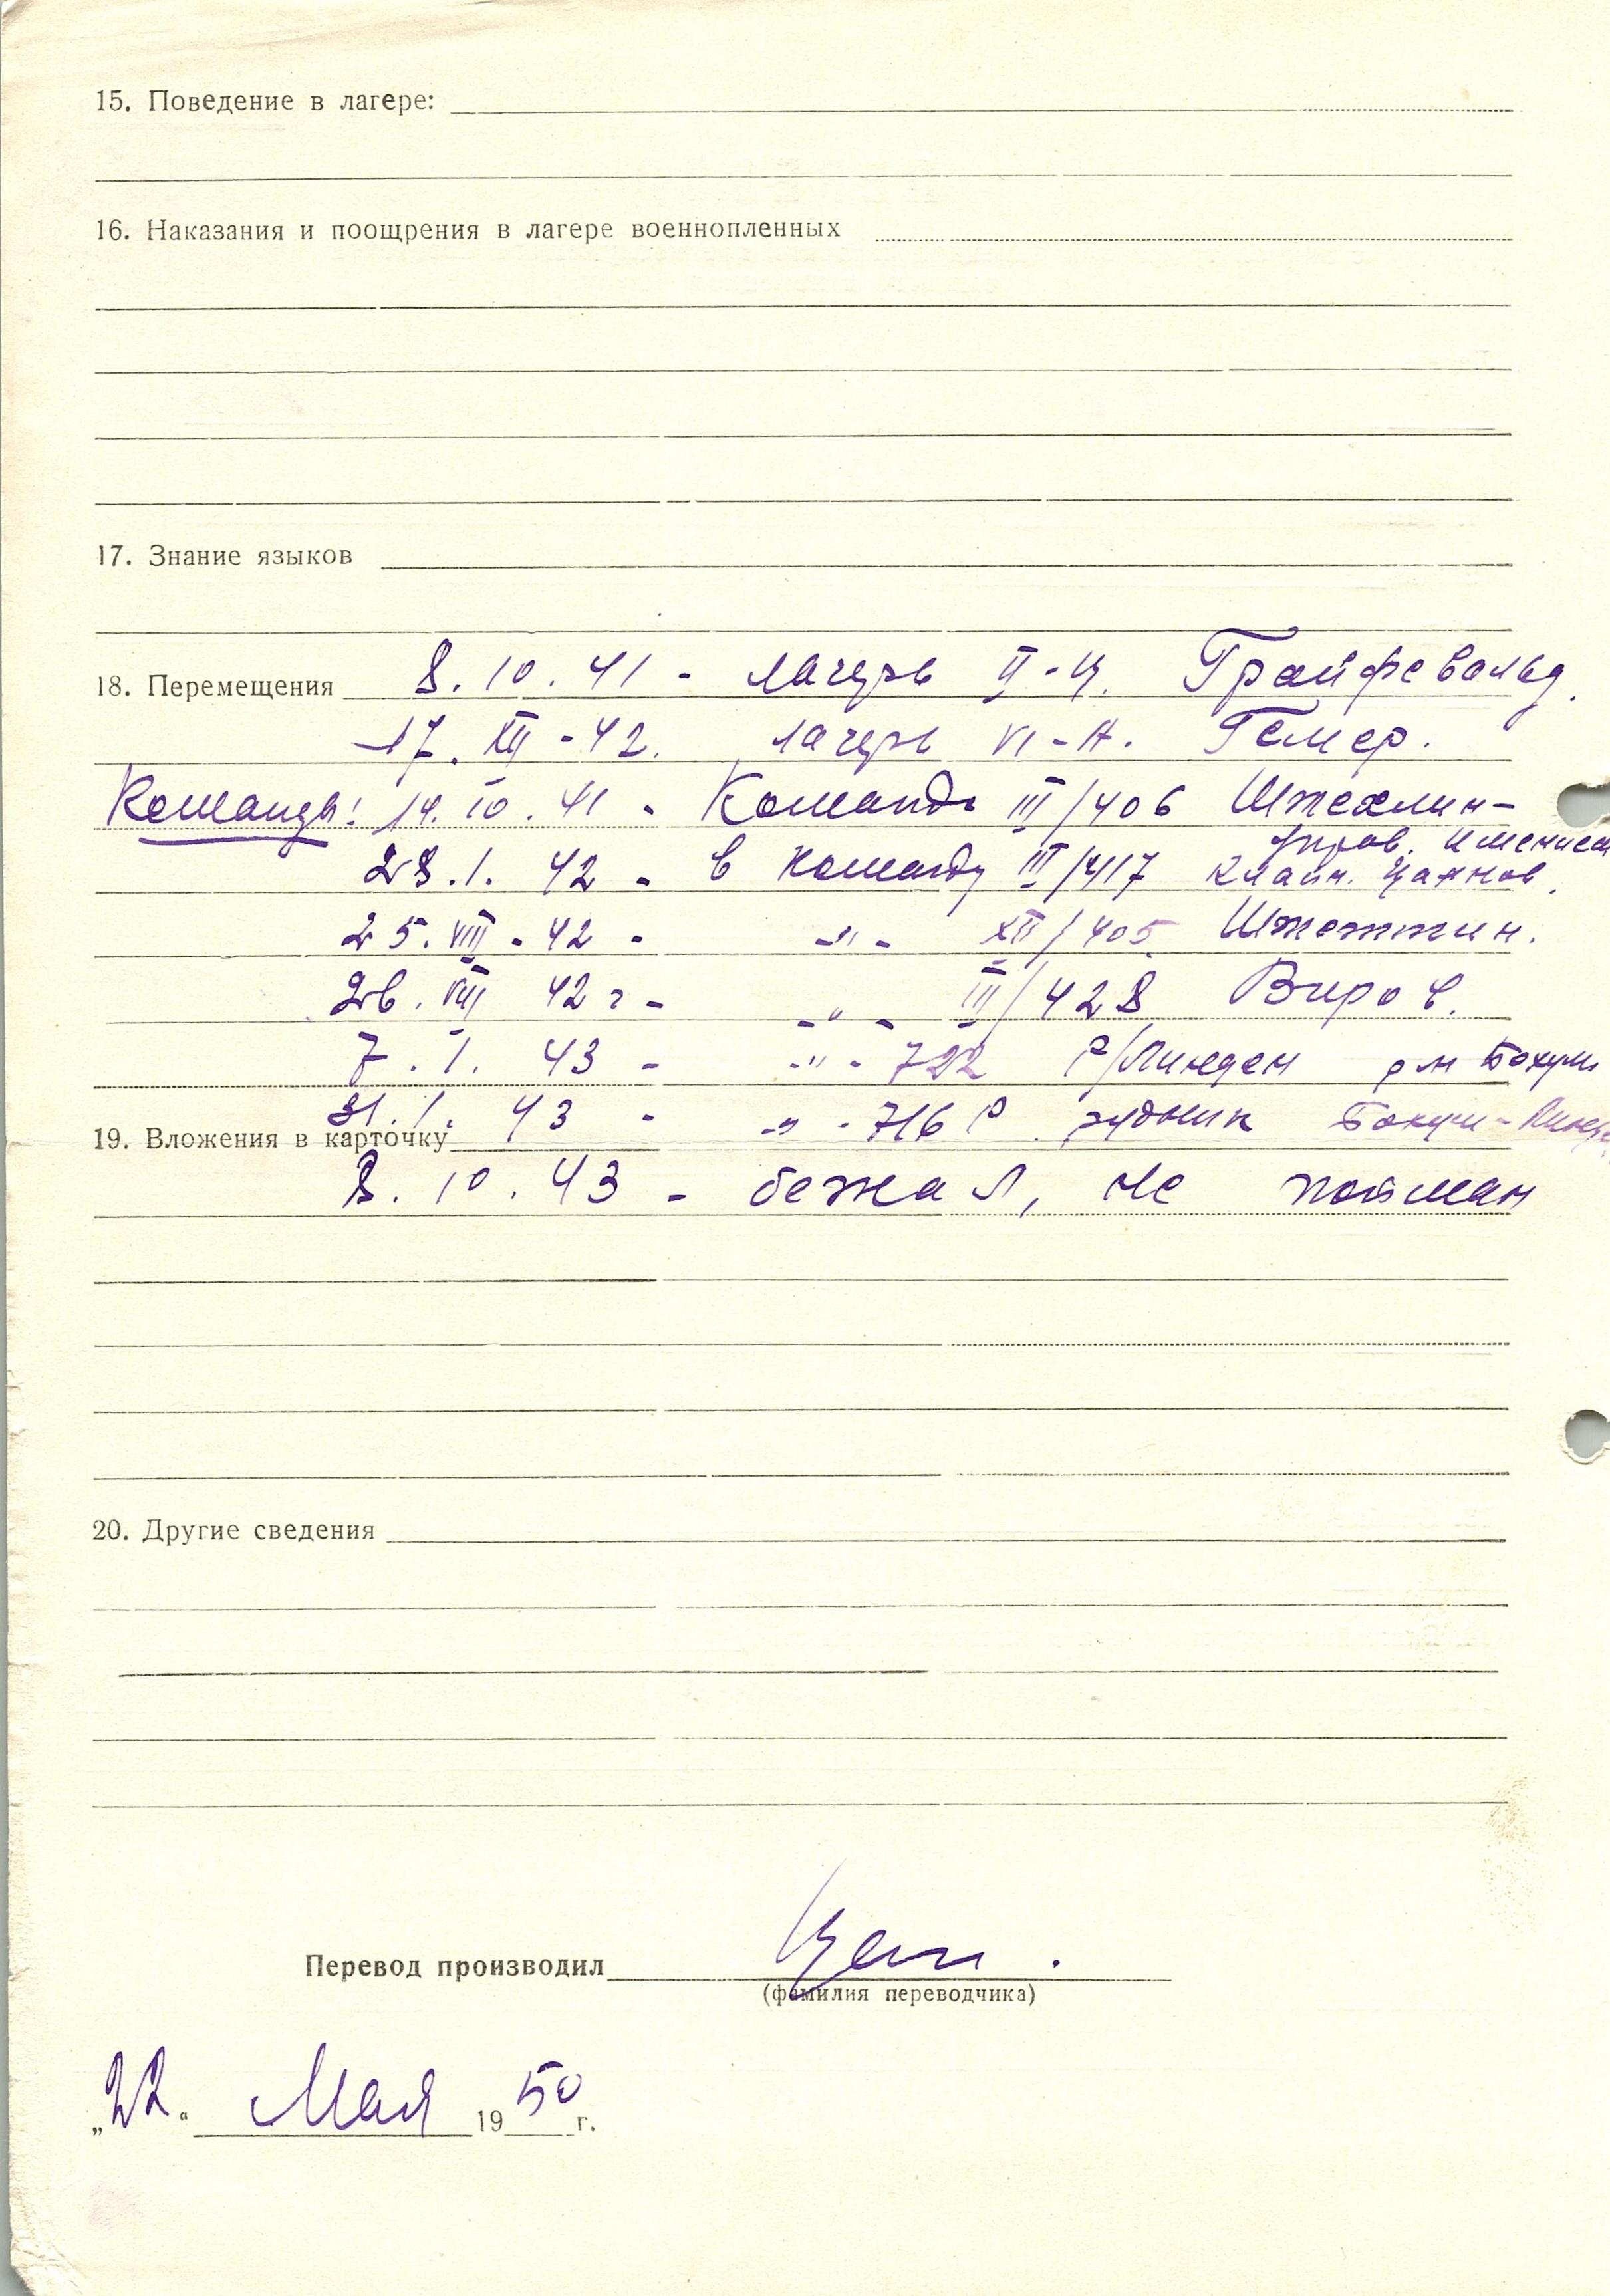 15. Поведение в лагере:
16. Наказания и поощрения в лагере военнопленных
17. Знание языков
18. Перемещения 8.10.41 - лагерь II-Ц. Грайфсвальд.
17. XII - 42. лагерь VI-А. Гемер.
Команды: 14.10.41 - Команда III/406 Штехлин-
управ. имением
28.1.42 - в команду III/417 Клайн.
25.VIII-42 - -"- XII/405 Штеттин.
26.VIII 42 г - -"- III/428 Виров.
7.I.43 - -"- 722 Р/Линден рн Бохум
31.1.43 - -"- 716 Р. рудник Бохум-Линд
19. Вложения в карточку
8.10.43 - бежал, не пойман
20. Другие сведения
Перевод производил
(фамилия переводчика)
„22“ Мая 1950 г.